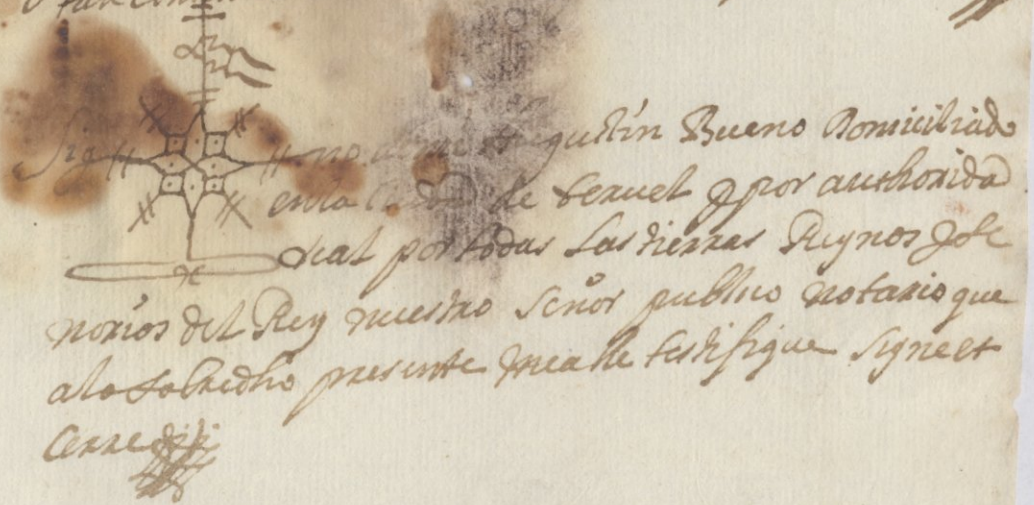 Sig no de mi Agustin Bueno Domiciliado
en la Ciudad de teruel y por authorida
real por todas Las tierras Reynos y Se
norios del Rey nuestro Señor publico notario que
a lo sobredho presente me halle testifique signe et
Cerre